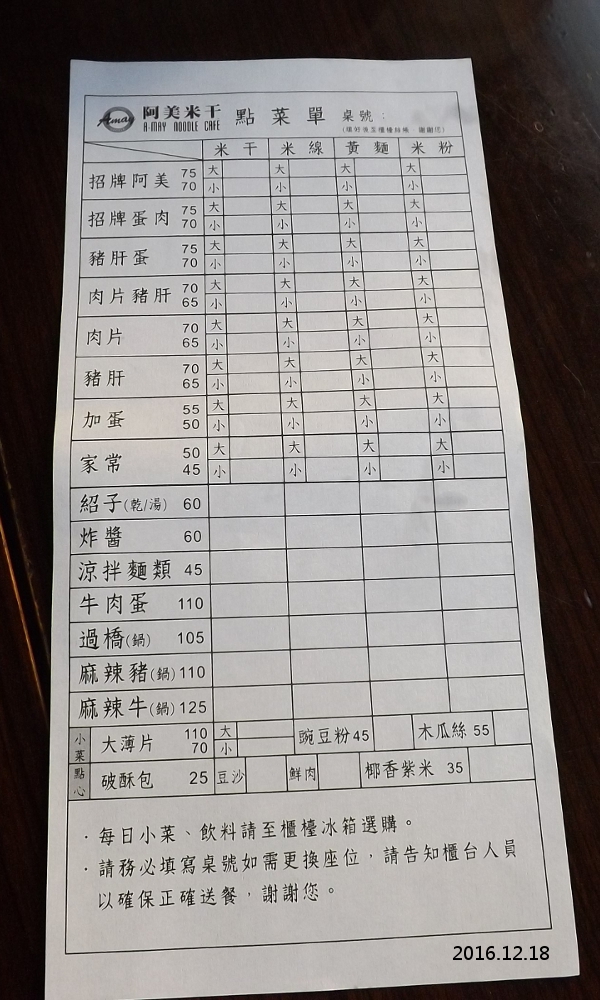 Amay 阿美米干 點菜單 桌號：
A-MAY NOODLE CAFE
(填好後至櫃檯結帳，謝謝您)
米干 米線 黃麵 米粉
招牌阿美 75 大 大 大 大
70 小 小 小 小
招牌蛋肉 75 大 大 大 大
70 小 小 小 小
豬肝蛋 75 大 大 大 大
70 小 小 小 小
肉片豬肝 70 大 大 大 大
65 小 小 小 小
肉片 70 大 大 大 大
65 小 小 小 小
豬肝 70 大 大 大 大
65 小 小 小 小
加蛋 55 大 大 大 大
50 小 小 小 小
家常 50 大 大 大 大
45 小 小 小 小
紹子(乾/湯) 60
炸醬 60
涼拌麵類 45
牛肉蛋 110
過橋(鍋) 105
麻辣豬(鍋) 110
麻辣牛(鍋) 125
小菜 大薄片 110 大 豌豆粉 45 木瓜絲 55
70 小
點心 破酥包 25 豆沙 鮮肉 椰香紫米 35
．每日小菜、飲料請至櫃檯冰箱選購。
．請務必填寫桌號如需更換座位，請告知櫃台人員
以確保正確送餐，謝謝您。
2016.12.18